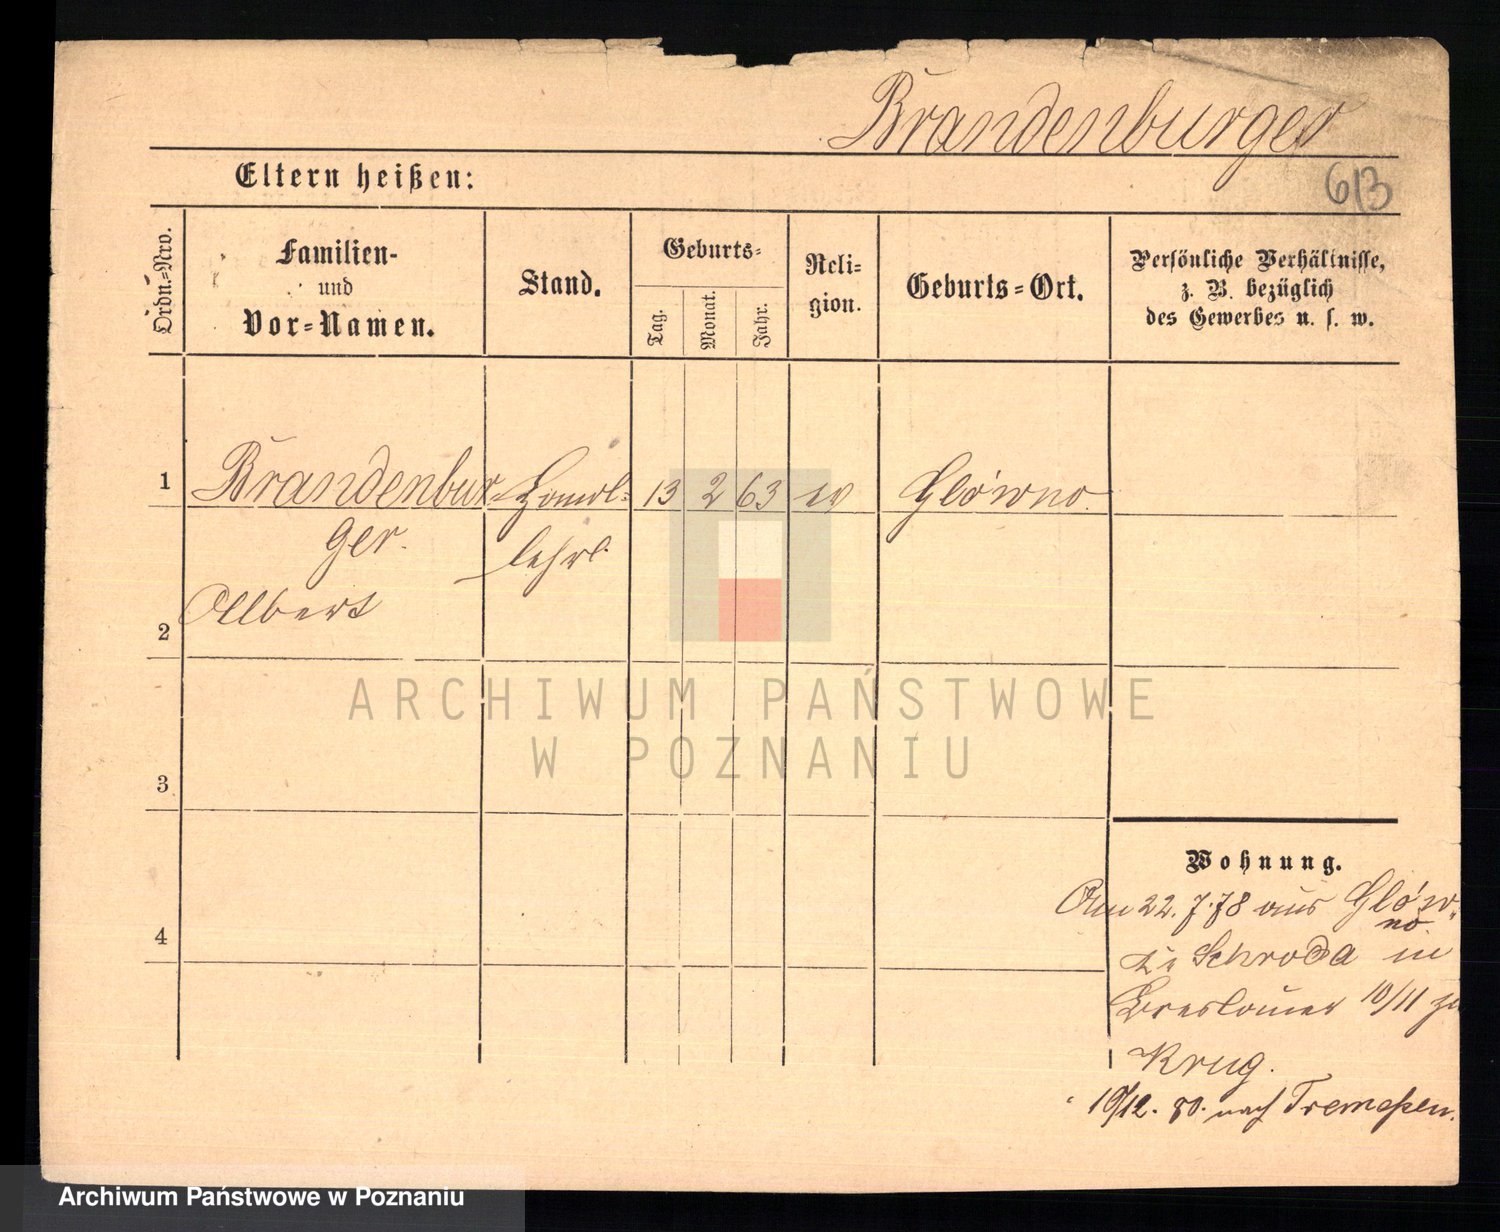 Brandenburger
Eltern heißen:
613
Ordn.-Nro.
Familien-
und
Vor-Namen.
Stand.
Geburts-
Tag.
Monat.
Jahr.
Reli-
gion.
Geburts-Ort.
Persönliche Verhältnisse,
z. B. bezüglich
des Gewerbes u. s. w.
1
Brandenbur-
ger.
Albert
lehrl.
13
2
63
ev
Glówno.
2
3
4
Wohnung.
Am 22.7.78 aus Glów-
no
Schroda in
Breslauer 10/11 zu
Krug.
19/12. 80. nach Tremeßen.
ARCHIWUM PAŃSTWOWE
W POZNANIU
Archiwum Państwowe w Poznaniu